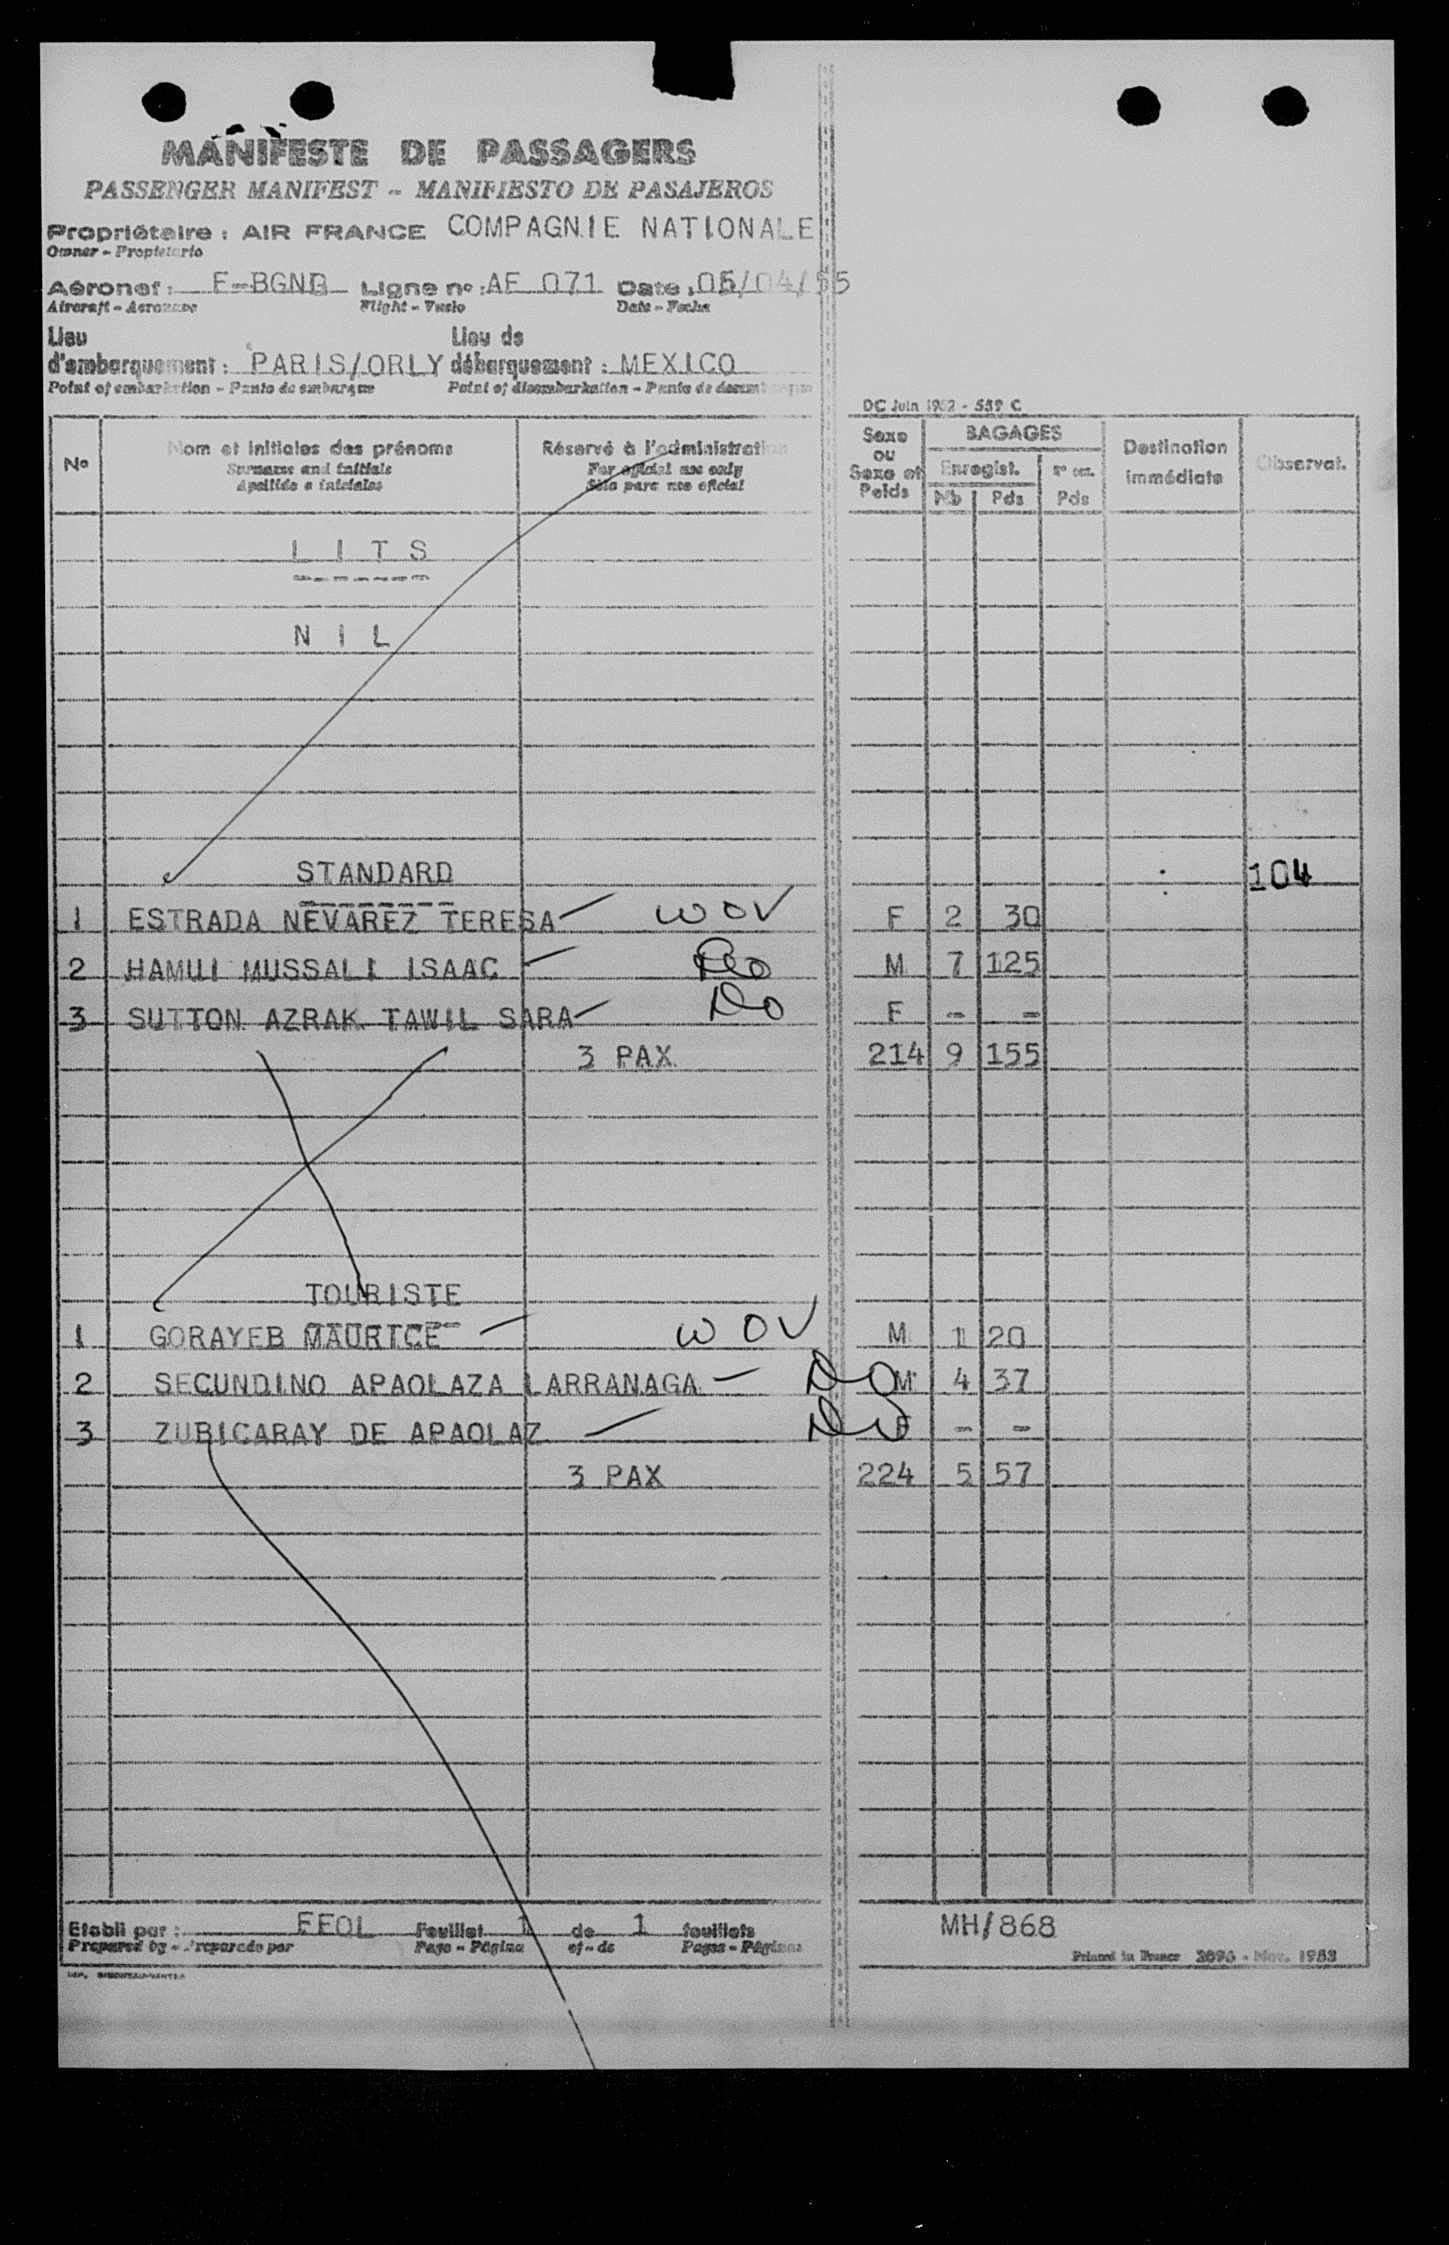 MANIFESTE DE PASSAGERS
PASSENGER MANIFEST - MANIFIESTO DE PASAJEROS
Propriétaire : AIR FRANCE COMPAGNIE NATIONALE
Owner - Propietario
Aéronef : F-BGNG Ligne no : AF 071 Date : 05/04/55
Aircraft - Aeronave Flight - Vuelo Date - Fecha
Lieu d'embarquement : PARIS/ORLY Lieu de débarquement : MEXICO
Point of embarkation - Punto de embarque Point of disembarkation - Punto de
DC Juin 1952 - 559 C
No Nom et initiales des prénoms Réservé à l'administration Sexe ou Sexe et Poids BAGAGES Destination immédiate Observat.
Surname and initials For official use only Enregist.
Apellido e iniciales Sólo para uso oficial Nb Pds Pds
L I T S
N I L
STANDARD 104
1 ESTRADA NEVAREZ TERESA WOV F 2 30
2 HAMUI MUSSALI ISAAC Do M 7 125
3 SUTTON AZRAK TAWIL SARA Do F - -
3 PAX 214 9 155
TOURISTE
1 GORAYEB MAURICE WOV M 1 20
2 SECUNDINO APAOLAZA LARRANAGA Do M 4 37
3 ZUBICARAY DE APAOLAZ Do F - -
3 PAX 224 5 57
Etabli par : FFOL Feuillet 1 de 1 feuillets MH/868
Prepared by - Preparado por Page - Página of - de Pages - Páginas
Printed in France 2896 - Nov. 1953